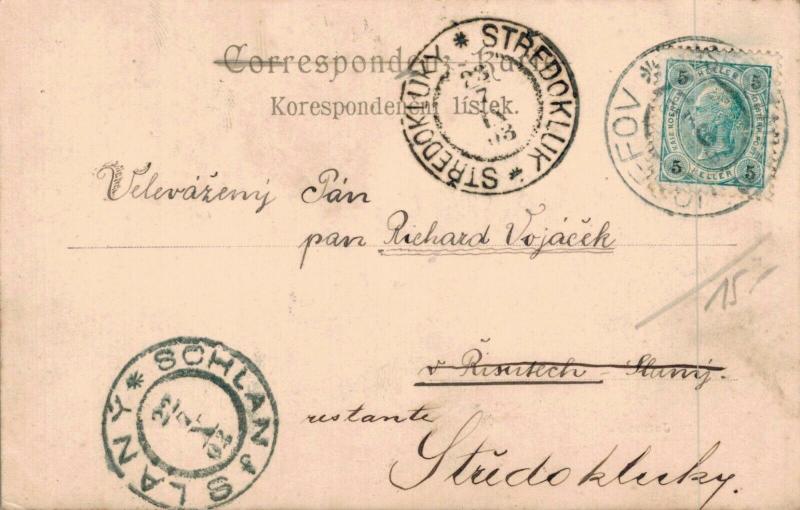 Correspondenz-Karte
Korespondenční lístek.
STŘEDOKLUK * STŘEDOKLUKY *
23
7
03
5 HELLER 5
5 HELLER 5
Velevážený Pán
pan Richard Vojáček
15
v Řisutech - Slaný.
restante
Středokluky.
SCHLAN * SLANÝ
23